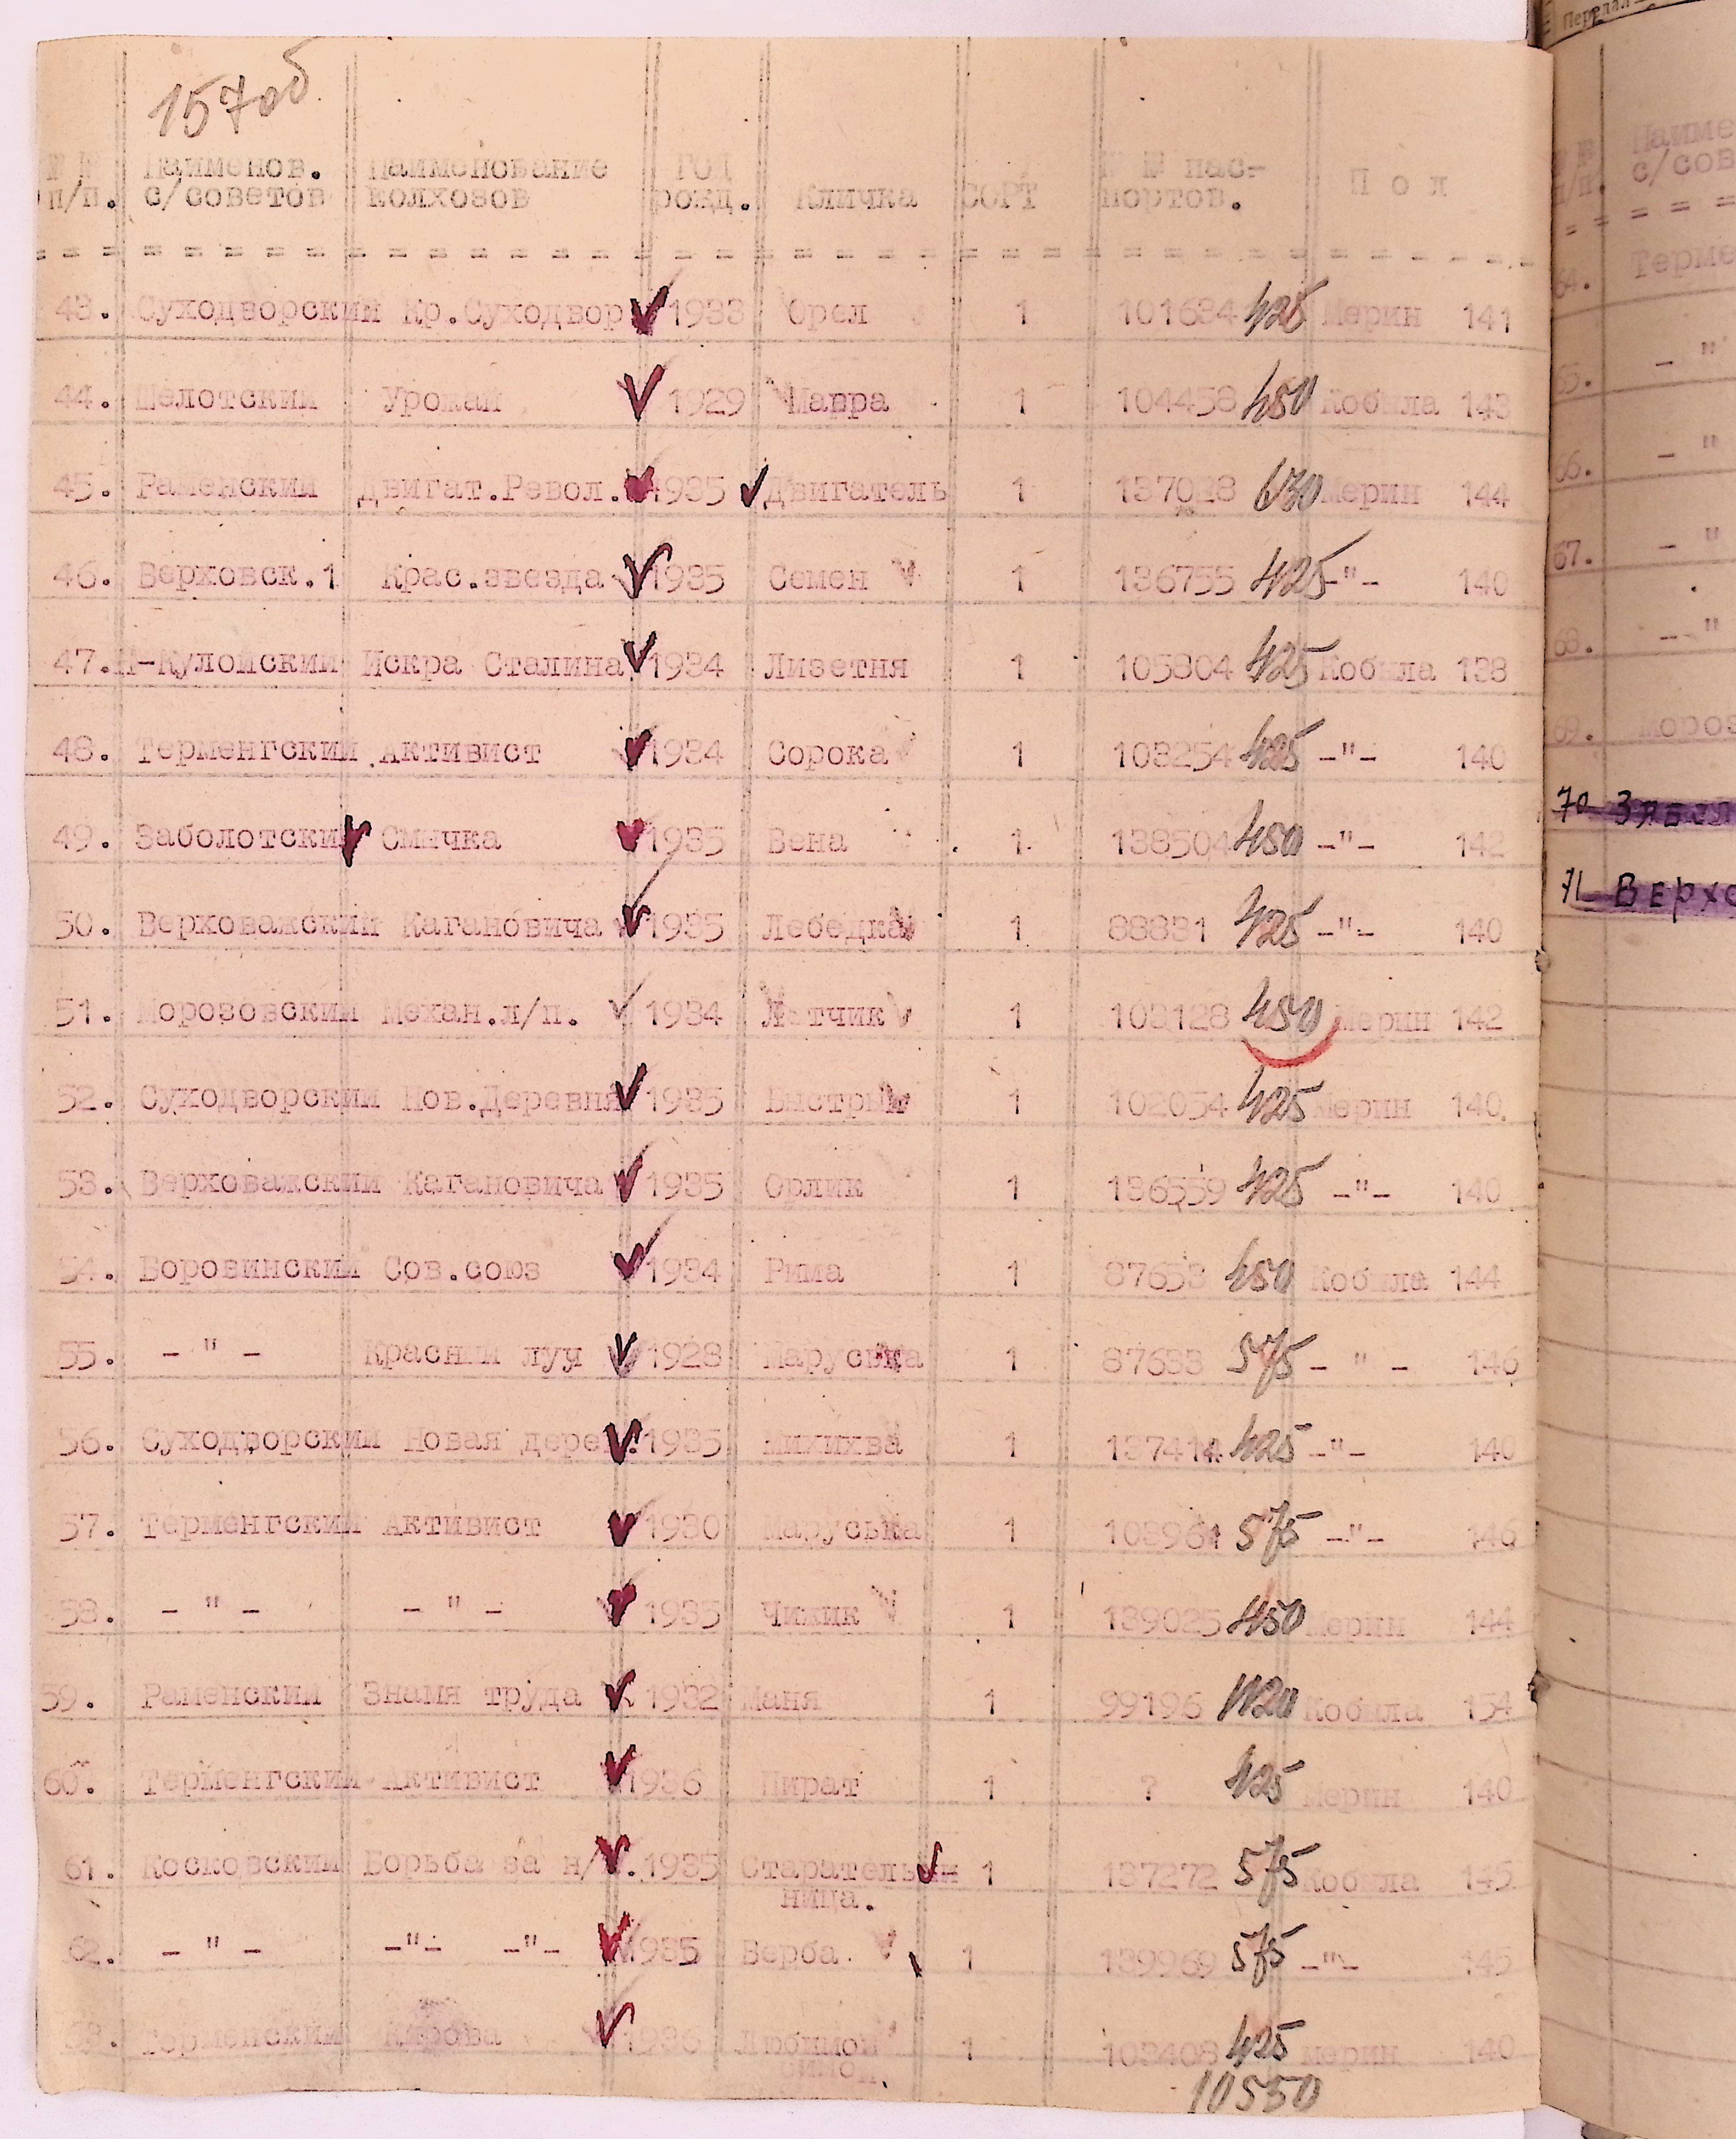 157об
№ № Наименов. Наименование ГОД Кличка СОРТ № № пас- П о л
п/п. с/советов колхозов рожд. портов.
43. Суходворский Кр.Суходвор 1933 Орел 1 101634 425 Мерин 141
44. Шелотский Урожай 1929 Мавра 1 104458 450 Кобыла 143
45. Раменский Двигат.Револ. 1935 Двигатель 1 137028 630 Мерин 144
46. Верховск.1 Крас.звезда 1935 Семен 1 136755 425 -"- 140
47. Н-Кулойский Искра Сталина 1934 Лизетня 1 105304 425 Кобыла 138
48. Терменгский Активист 1934 Сорока 1 103254 425 -"- 140
49. Заболотский Смычка 1935 Вена 1 138504 450 -"- 142
50. Верховажский Кагановича 1935 Лебедка 1 88831 425 -"- 140
51. Морозовский Механ.л/п. 1934 Летчик 1 103128 450 Мерин 142
52. Суходворский Нов.Деревня 1935 Быстрый 1 102054 425 Мерин 140
53. Верховажский Кагановича 1935 Орлик 1 136559 425 -"- 140
54. Боровинский Сов.союз 1934 Рима 1 87653 450 Кобыла 144
55. - " - Красный луч 1928 Маруська 1 87633 575 - " - 146
56. Суходворский Новая дере 1935 1 137414 425 -"- 140
57. Терменгский Активист 1930 Маруська 1 103961 575 -"- 146
58. - " - - " - 1935 Чижик 1 139025 450 Мерин 144
59. Раменский Знамя труда 1932 Маня 1 99196 1120 Кобыла 154
60. Терменгский Активист 1936 Пират 1 ? 425 мерин 140
61. Косковский Борьба за н/ . 1935 Старатель 1 137272 575 Кобыла 145
ница.
62. - " - -"- -"- 1935 Верба 1 139969 575 -"- 145
63. Терменский Кирова 1936 Любимой 1 103408 425 мерин 140
10550
Передал
Наиме
п/п. с/сов
64. Терме
65. - "
66. - "
67. - "
68. - "
69. Мороз
70 Зявел
71 Верхо